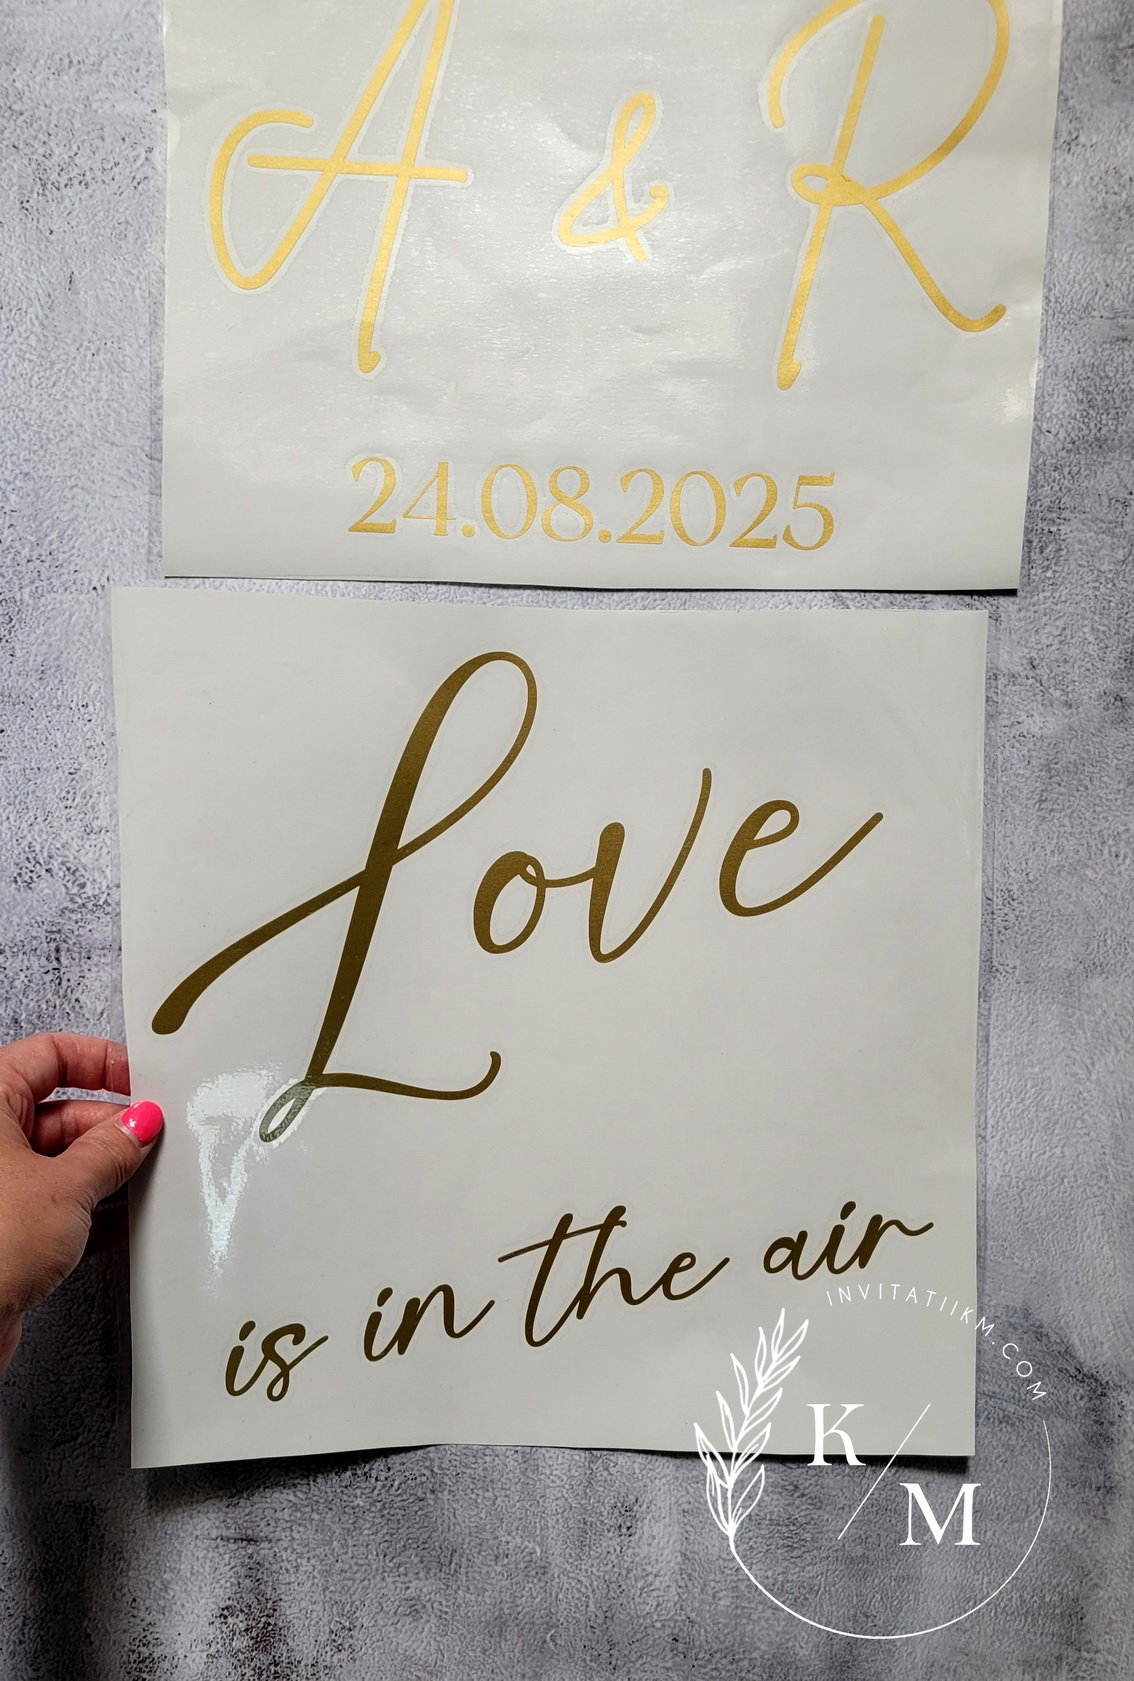 A & R
24.08.2025
Love
is in the air
INVITATIIKM.COM
K
M